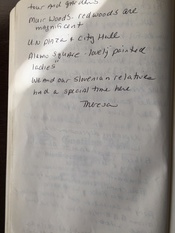 tour and gardens
Muir Woods, redwoods are
magnificent
UN Plaza & City Hall
Alamo Square "lovely painted
ladies"
We and our Slovenian relatives
had a special time here
Theresa